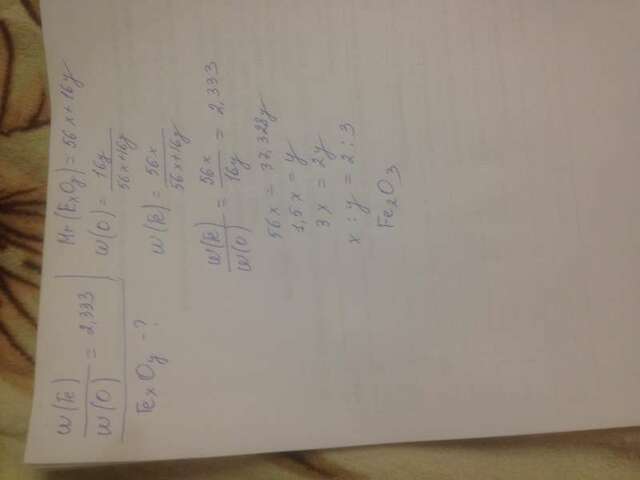 w(Fe)/w(O) = 2,333
FexOy - ?
Mr(ExOy) = 56x + 16y
w(O) = 16y/56x+16y
w(Fe) = 56x/56x+16y
w(Fe)/w(O) = 56x/16y = 2,333
56x = 37,328y
1,5x = y
3x = 2y
x : y = 2 : 3
Fe2O3